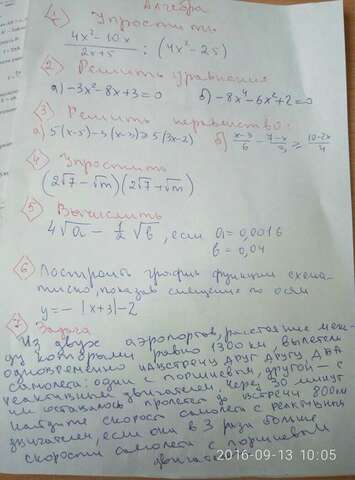 Алгебра
1 Упростить
4x²-10x / 2x+5 : (4x²-25)
2 Решить уравнения
а) -3x²-8x+3=0 б) -8x⁴-6x²+2=0
3 Решить неравенство:
а) 5(x-5)-3(x-3)≥5(3x-2) б) x-3/6 - 7-x/3 ≥ 10-2x/4
4 Упростить
(2√7-√m)(2√7+√m)
5 Вычислить
4√a - 1/2√b, если a=0,0016
b=0,04
6 Построить график функции схема-
тично, показав смещение по осям
y=-|x+3|-2
7 Задача
Из двух аэропортов, расстояние меж-
ду которыми равно 1300 км, вылетели
одновременно навстречу друг другу два
самолета: один с поршневым, другой - с
реактивным двигателем. Через 30 минут
им осталось пролететь до встречи 800км
Найдите скорость самолета с реактивным
двигателем, если она в 3 раза больше
скорости самолета с поршневым
двигателем
2016-09-13 10:05